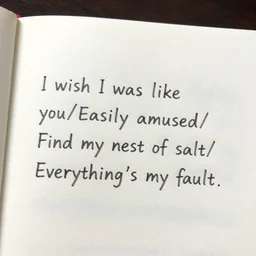 I wish I was like
you/Easily amused/
Find my nest of salt/
Everything's my fault.